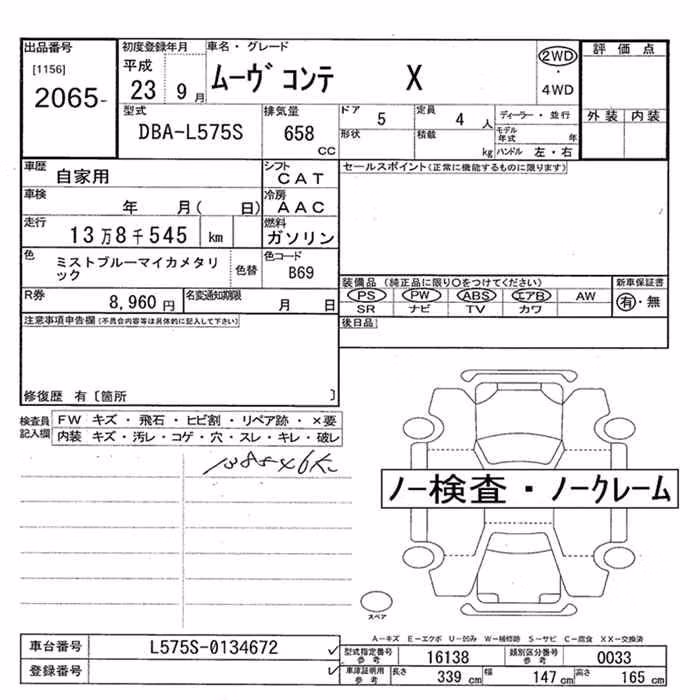 出品番号
[1156]
2065-
初度登録年月
平成
23 9 月
車名・グレード
ムーヴ コンテ X
2WD
・
4WD
評 価 点
外 装 内 装
型式
DBA-L575S
排気量
658
CC
ドア 5
形状
定員 4 人
積載 kg
ディーラー・並行
モデル年式 年
ハンドル 左・右
車歴
自家用
シフト
CAT
セールスポイント(正常に機能するものに限ります)
車検
年 月( 日)
冷房
AAC
走行
13万8千545 km
燃料
ガソリン
色
ミストブルーマイカメタリ
ック
色替
色コード
B69
装備品 (純正品に限り○をつけてください)
新車保証書
PS PW ABS エアB AW
有・無
SR ナビ TV カワ
R券
8,960 円
名変通知期限
月 日
後日品
注意事項申告欄(不具合内容等は具体的に記入して下さい)
修復歴 有〔箇所 〕
検査員
記入欄
FW キズ・飛石・ヒビ割・リペア跡・×要
内装 キズ・汚レ・コゲ・穴・スレ・キレ・破レ
138546K
ノー検査・ノークレーム
スペア
A-キズ E-エクボ U-凹み W-補修跡 S-サビ C-腐食 XX-交換済
車台番号
L575S-0134672
型式指定番号
参考
16138
類別区分番号
参考
0033
登録番号
車庫証明用
参考
長さ 339 cm
幅 147 cm
高さ 165 cm